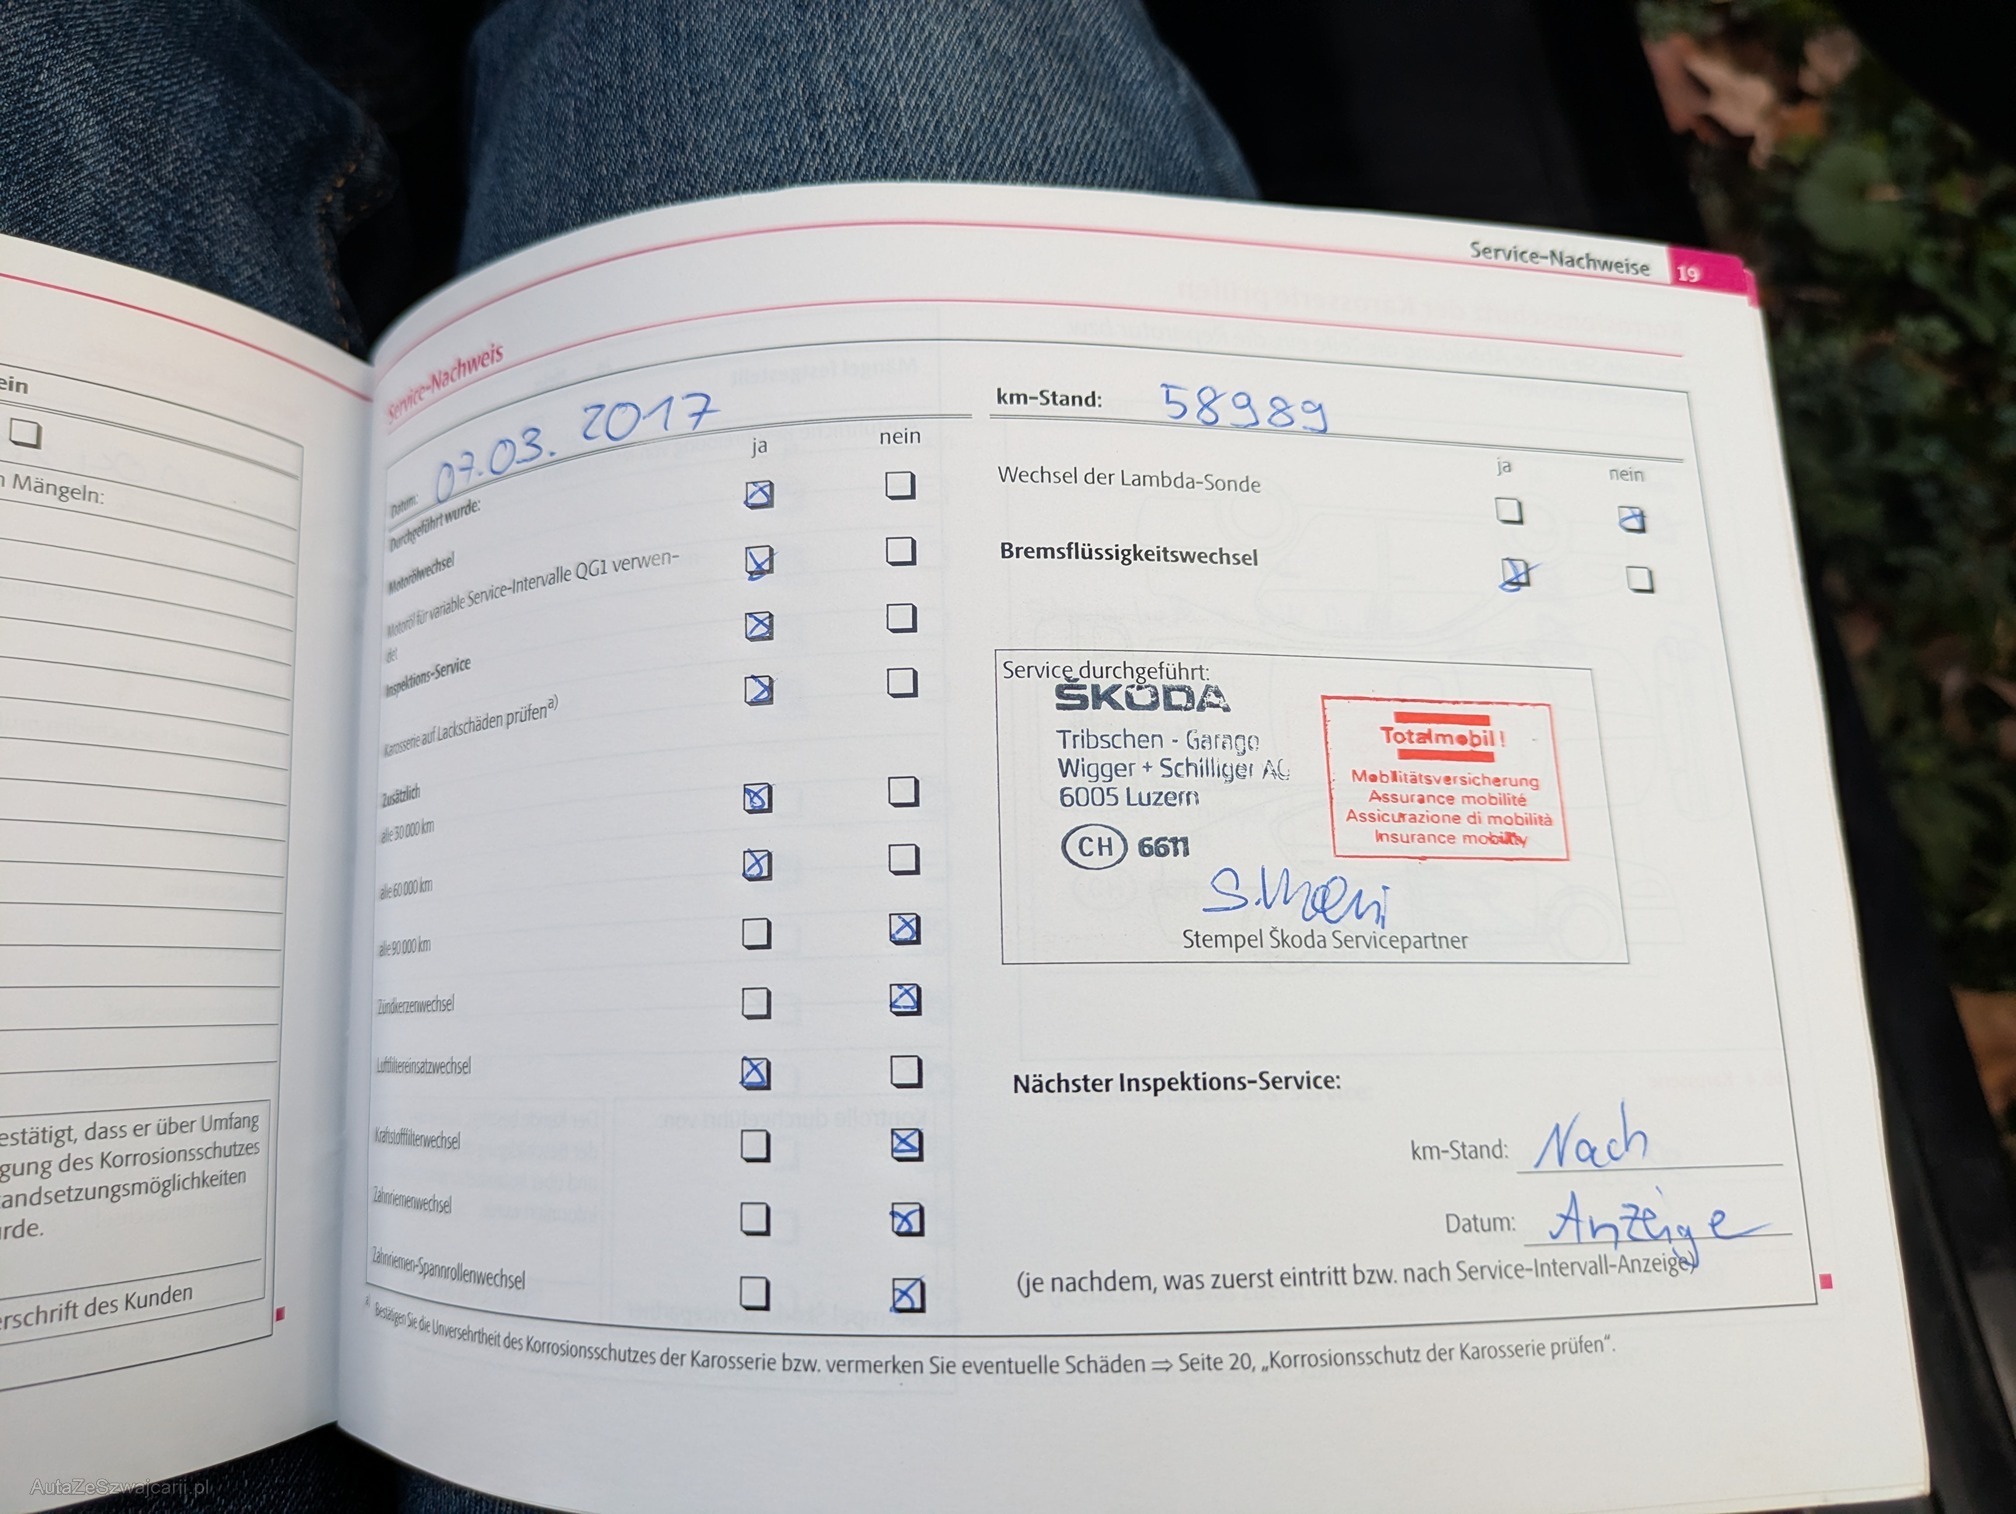 ein
n Mängeln:
estätigt, dass er über Umfang
gung des Korrosionsschutzes
andsetzungsmöglichkeiten
rde.
erschrift des Kunden
Service-Nachweise 19
Service-Nachweis
Datum: 07.03.2017
Durchgeführt wurde:
ja nein
Motorölwechsel
Motoröl für variable Service-Intervalle QG1 verwen-
det
Inspektions-Service
Karosserie auf Lackschäden prüfen a)
Zusätzlich
alle 30 000 km
alle 60 000 km
alle 90 000 km
Zündkerzenwechsel
Luftfiltereinsatzwechsel
Kraftstofffilterwechsel
Zahnriemenwechsel
Zahnriemen-Spannrollenwechsel
km-Stand: 58989
ja nein
Wechsel der Lambda-Sonde
Bremsflüssigkeitswechsel
Service durchgeführt:
ŠKODA
Tribschen - Garage
Wigger + Schilliger AG
6005 Luzern
CH 6611
Totalmobil!
Mobilitätsversicherung
Assurance mobilité
Assicurazione di mobilità
Insurance mobility
Stempel Škoda Servicepartner
Nächster Inspektions-Service:
km-Stand: Nach
Datum: Anzeige
(je nachdem, was zuerst eintritt bzw. nach Service-Intervall-Anzeige)
a) Bestätigen Sie die Unversehrtheit des Korrosionsschutzes der Karosserie bzw. vermerken Sie eventuelle Schäden ⇒ Seite 20, „Korrosionsschutz der Karosserie prüfen“.
AutaZeSzwajcarii.pl